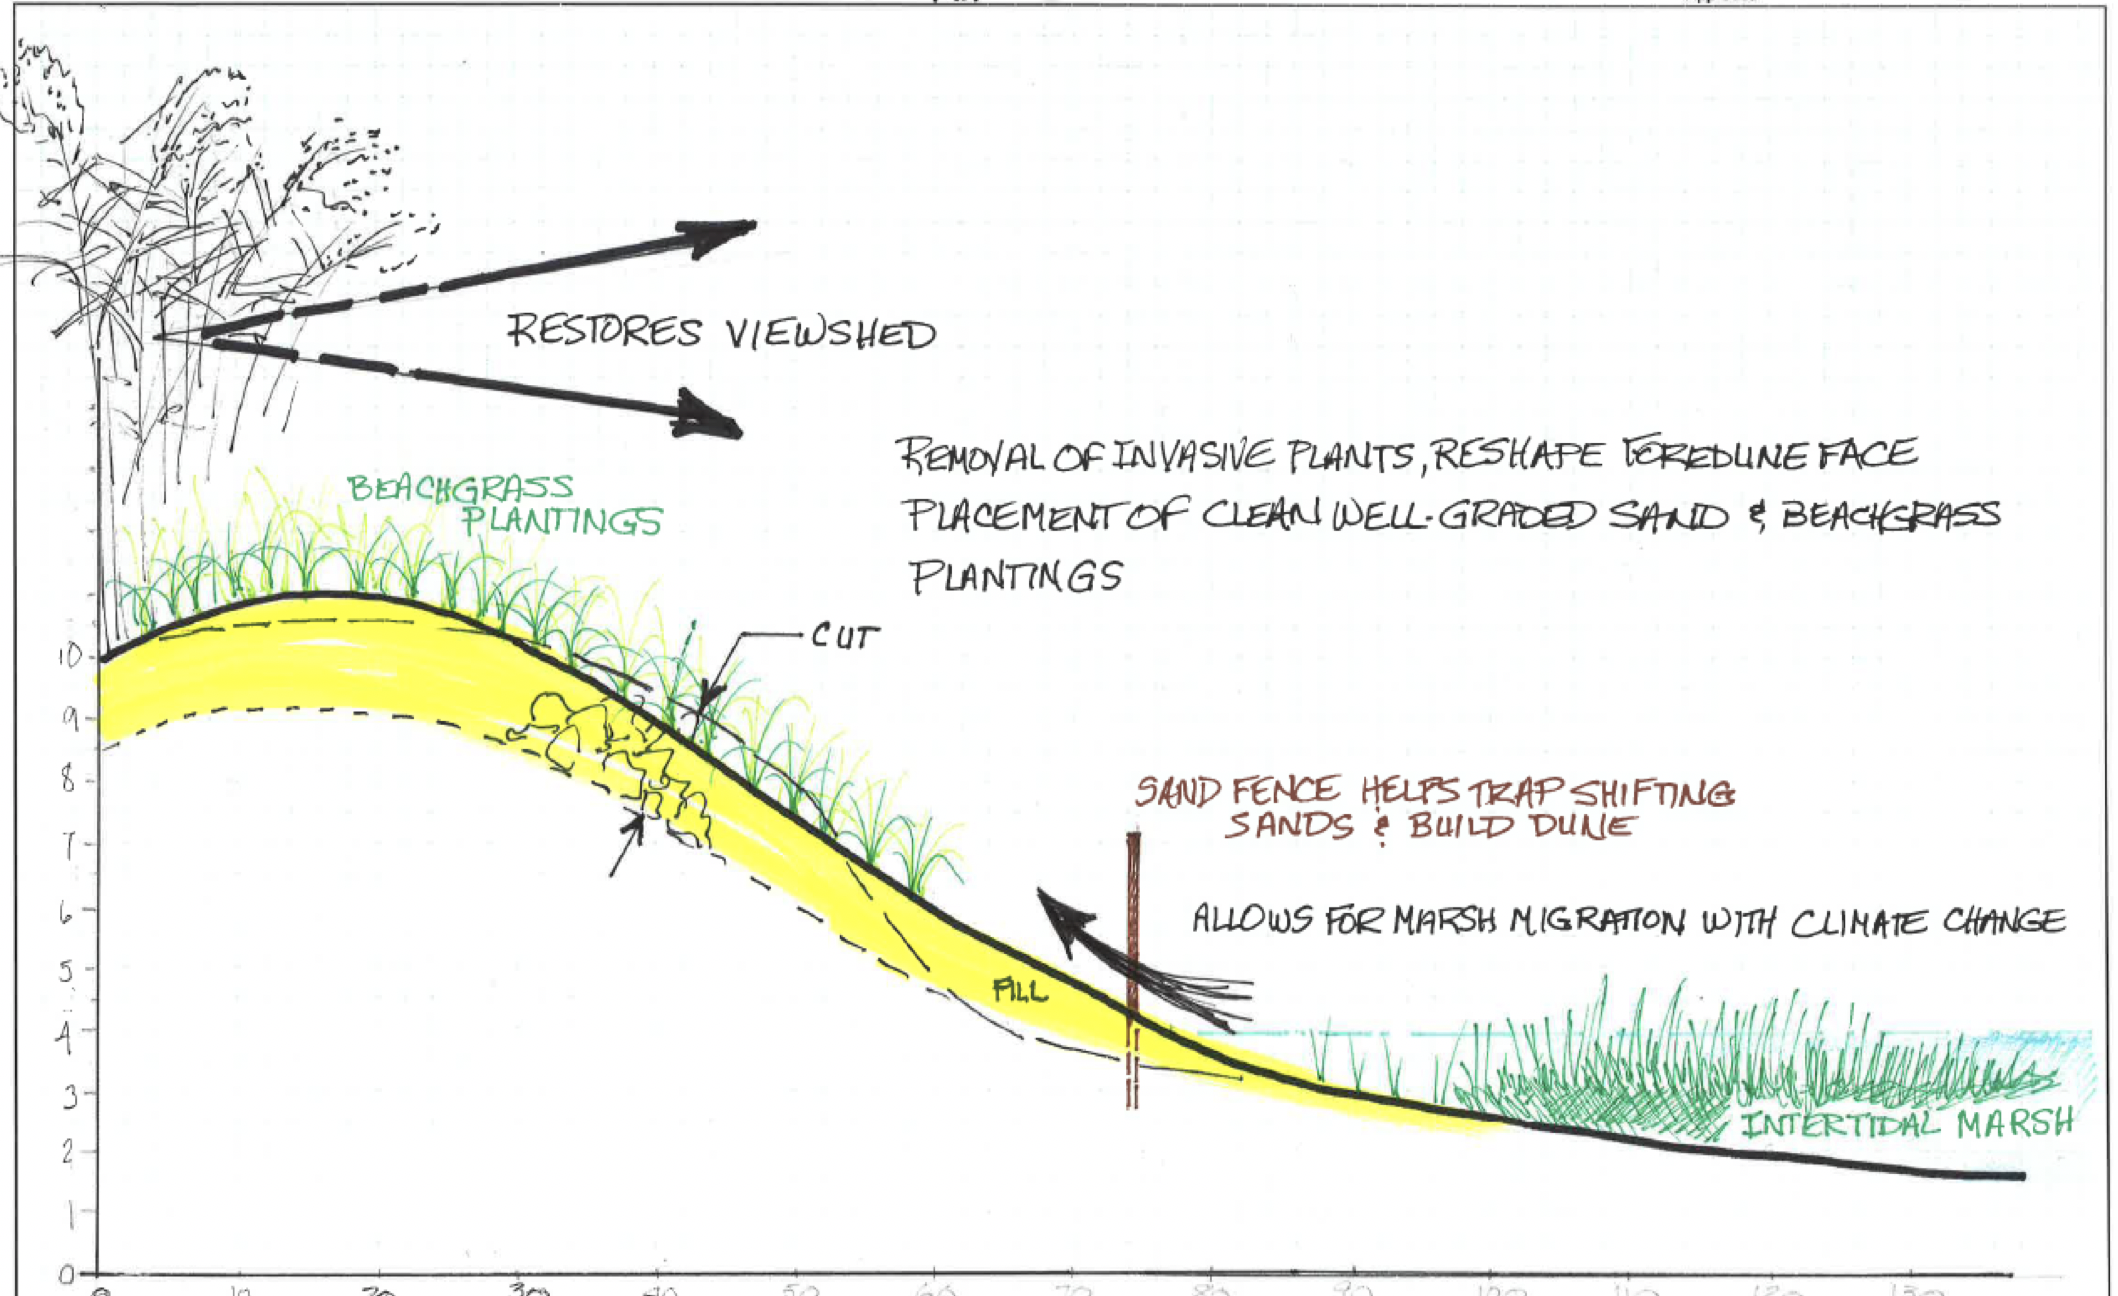 RESTORES VIEWSHED
REMOVAL OF INVASIVE PLANTS, RESHAPE FOREDUNE FACE
PLACEMENT OF CLEAN WELL-GRADED SAND & BEACHGRASS
PLANTINGS
BEACHGRASS
PLANTINGS
CUT
SAND FENCE HELPS TRAP SHIFTING
SANDS & BUILD DUNE
ALLOWS FOR MARSH MIGRATION WITH CLIMATE CHANGE
FILL
INTERTIDAL MARSH
10
9
8
7
6
5
4
3
2
1
0
0 10 20 30 40 50 60 70 80 90 100 110 120 130